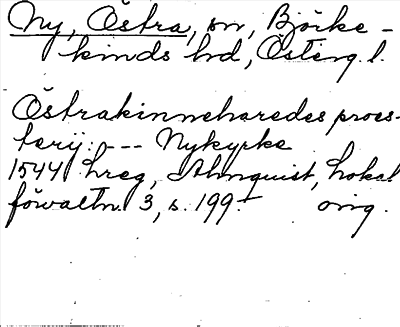 Ny, Östra, sn, Björke-
kinds hd, Österg. l.
Östrakinneharedes proes-
terij: --- Nykyrke
1544 hreg, Almquist, Lokal
förvaltn. 3, s. 199. orig.